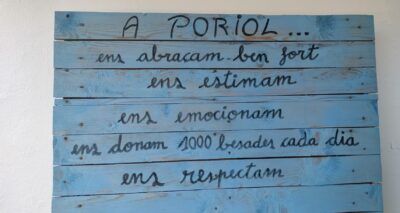 A PORIOL...
ens abraçam ben fort
ens estimam
ens emocionam
ens donam 1000 besades cada dia
ens respectam